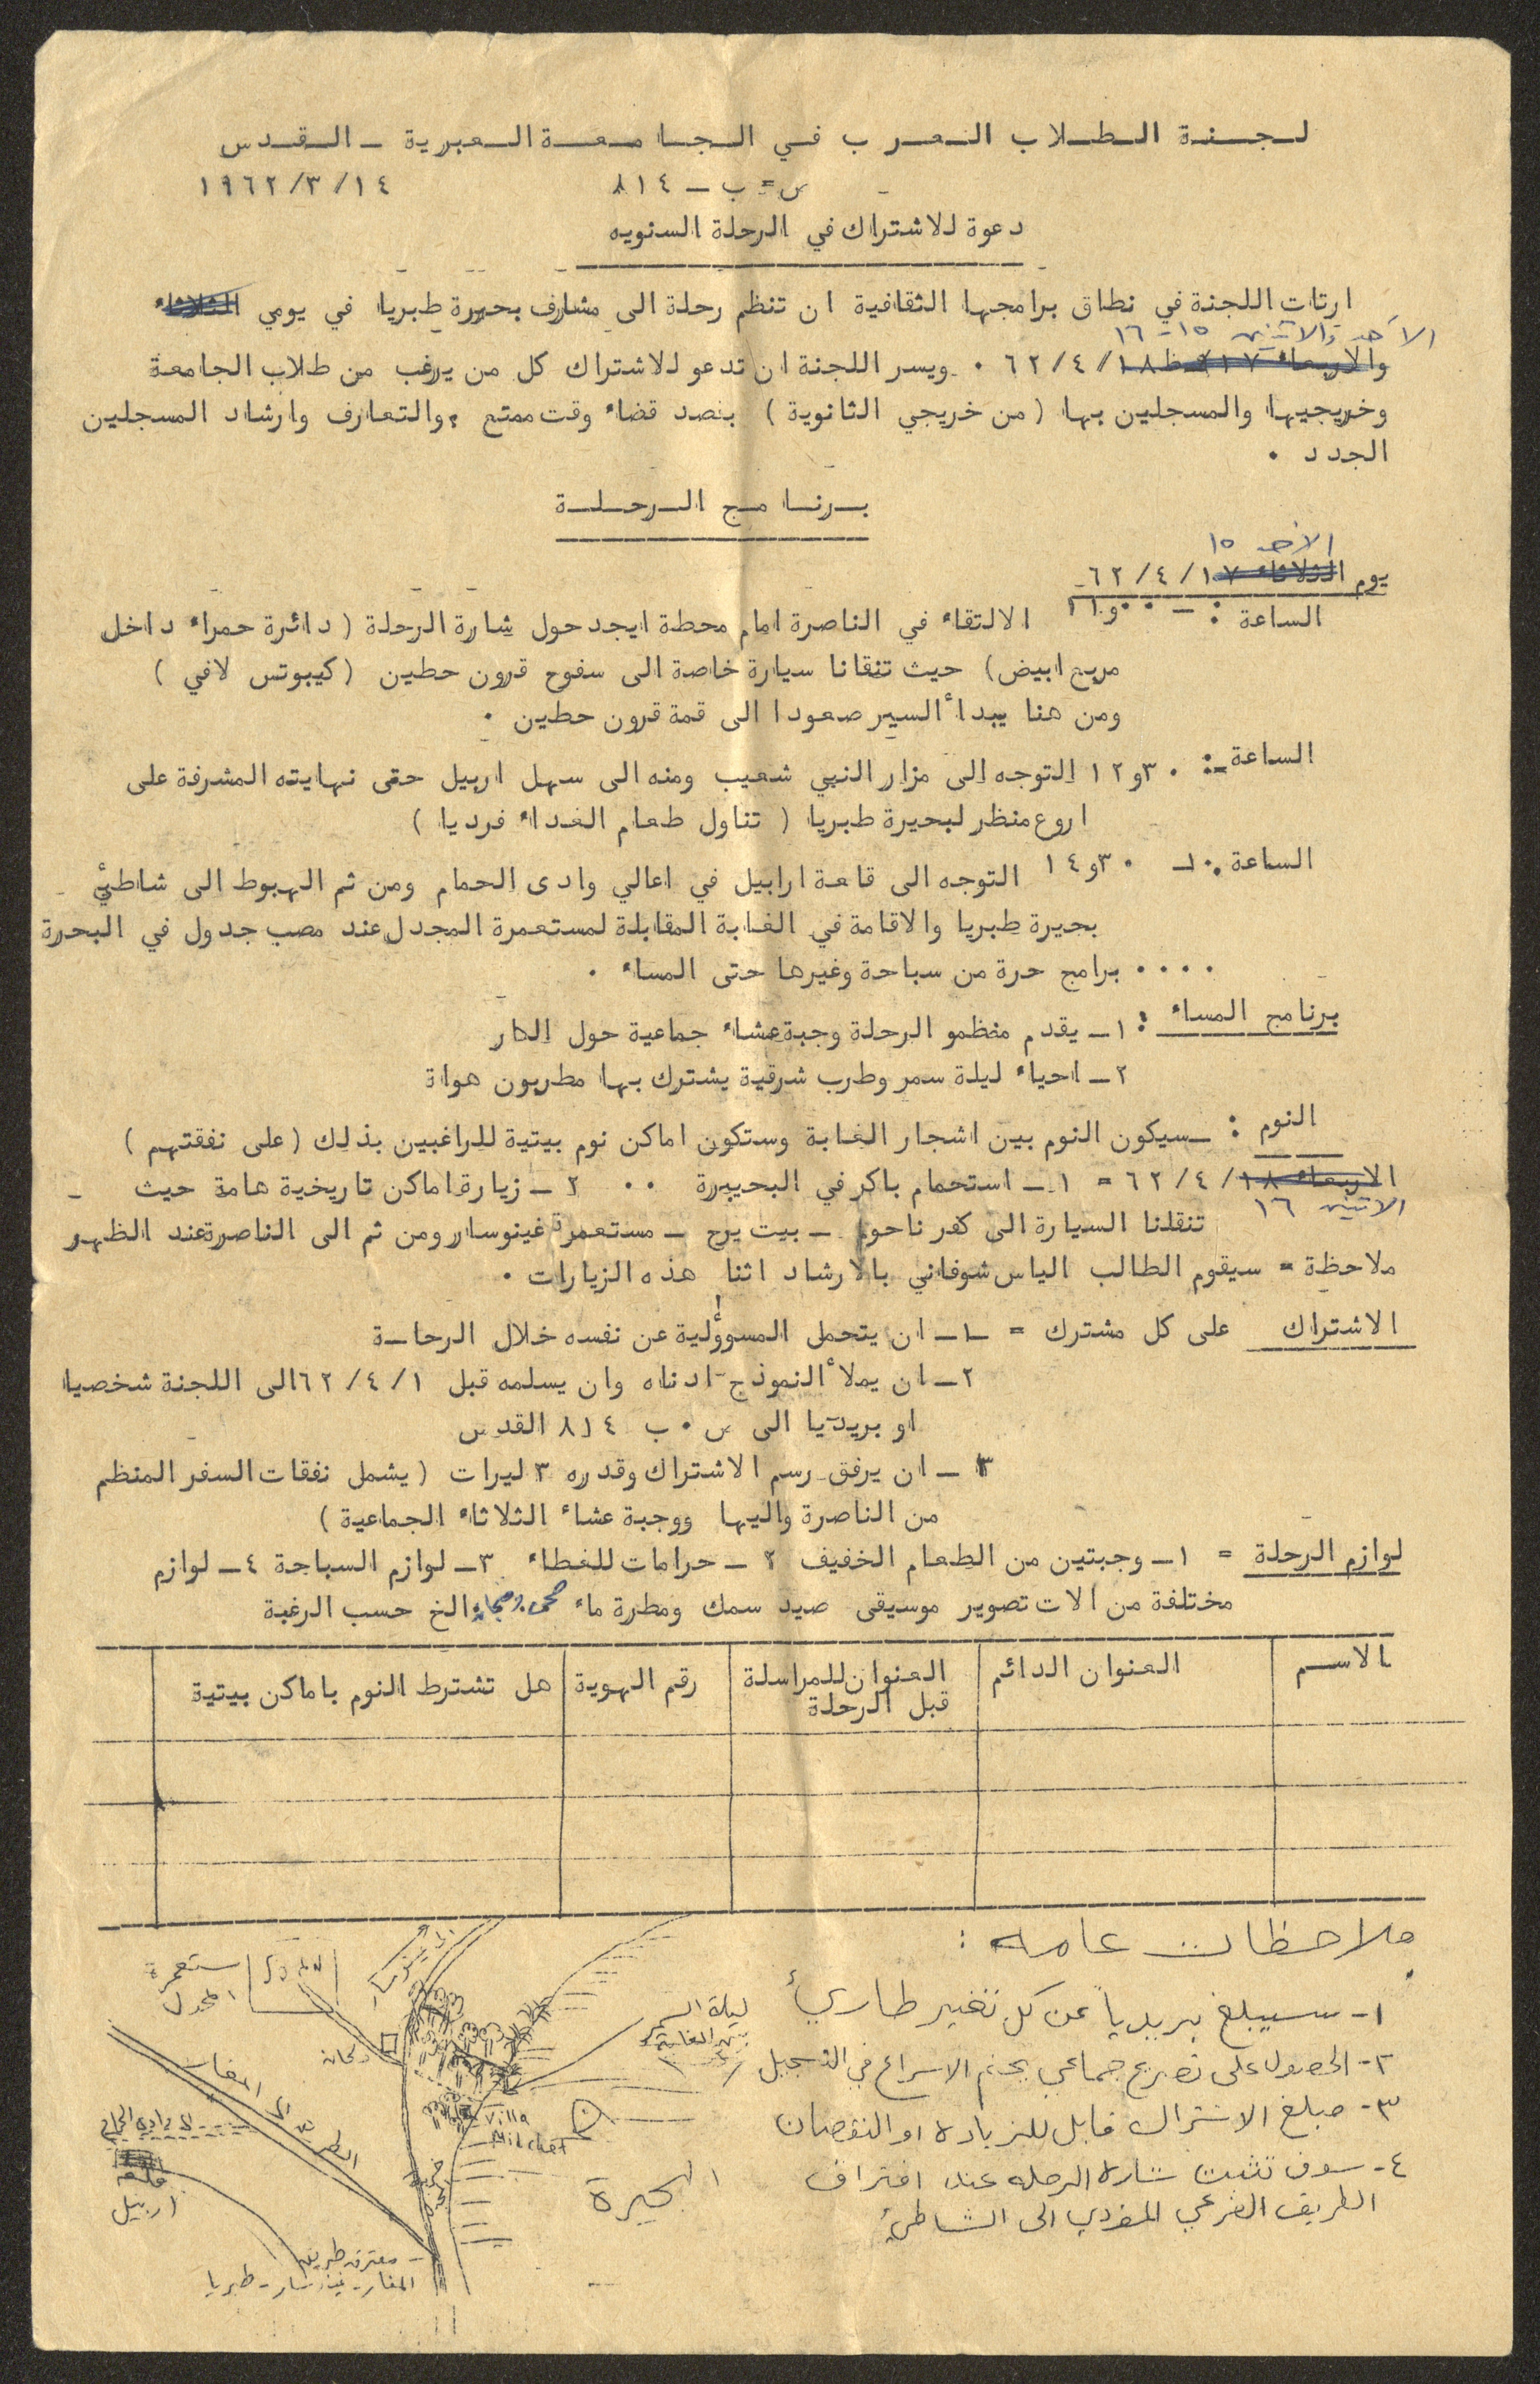 لجنة الطلاب العرب في الجامعة العبرية - القدس
ص=ب - ٨١٤ ١٩٦٢/٣/١٤
دعوة للاشتراك في الرحلة السنويه
ارتات اللجنة في نطاق برامجها الثقافية ان تنظم رحلة الى مشارف بحيرة طبريا في يومي الثلاثاء
الاحد والاثنين ١٥-١٦
والاربعاء ١٧ ١٨/٤/٦٢ ٠ ويسر اللجنة ان تدعو للاشتراك كل من يرغب من طلاب الجامعة
وخريجيها والمسجلين بها (من خريجي الثانوية) بقصد قضاء وقت ممتع ، والتعارف وارشاد المسجلين
الجدد ٠
برنامج الرحلة
الاحد ١٥
يوم الثلاثاء ١٧/٤/٦٢
الساعة :- ٠٠و١١ الالتقاء في الناصرة امام محطة ايجد حول شارة الرحلة (دائرة حمراء داخل
مربع ابيض) حيث تنقلنا سيارة خاصة الى سفوح قرون حطين (كيبوتس لافي)
ومن هنا يبدأ السير صعودا الى قمة قرون حطين ٠
الساعة :- ٣٠و١٢ التوجه الى مزار النبي شعيب ومنه الى سهل اربيل حتى نهايته المشرفة على
اروع منظر لبحيرة طبريا (تناول طعام الغداء فرديا)
الساعة :- ٣٠و١٤ التوجه الى قلعة ارابيل في اعالي وادى الحمام ومن ثم الهبوط الى شاطئ
بحيرة طبريا والاقامة في الغابة المقابلة لمستعمرة المجدل عند مصب جدول في البحرة
٠٠٠٠ برامج حرة من سباحة وغيرها حتى المساء ٠
برنامج المساء : ١- يقدم منظمو الرحلة وجبة عشاء جماعية حول النار
٢- احياء ليلة سمر وطرب شرقية يشترك بها مطربون هواة
النوم : -سيكون النوم بين اشجار الغابة وستكون اماكن نوم بيتية للراغبين بذلك (على نفقتهم)
الاربعاء ١٨/٤/٦٢ = ١- استحمام باكر في البحيرة ٠٠ ٢- زيارة اماكن تاريخية هامة حيث -
الاثنين ١٦
تنقلنا السيارة الى كفر ناحوم - بيت يرح - مستعمرة غينوسار ومن ثم الى الناصرة عند الظهر
ملاحظة = سيقوم الطالب الياس شوفاني بالارشاد اثنا هذه الزيارات ٠
الاشتراك على كل مشترك = ١- ان يتحمل المسوؤلية عن نفسه خلال الرحلة
٢- ان يملأ النموذج ادناه وان يسلمه قبل ٦٢/٤/١ الى اللجنة شخصيا
او بريديا الى ص٠ب ٨١٤ القدس
٣- ان يرفق رسم الاشتراك وقدره ٣ ليرات (يشمل نفقات السفر المنظم
من الناصرة واليها ووجبة عشاء الثلاثاء الجماعية)
لوازم الرحلة = ١- وجبتين من الطعام الخفيف ٢- حرامات للغطاء ٣- لوازم السباحة ٤- لوازم
مختلفة من الات تصوير موسيقى صيد سمك ومطرة ماء الخ حسب الرغبة
الاسم
العنوان الدائم
العنوان للمراسلة
قبل الرحلة
رقم الهوية
هل تشترط النوم باماكن بيتية
ملاحظات عامه :
١- سيبلغ بريدياً عن كل تغيير طاريء
٢- الحصول على تصريح جماعي يحتم الاسراع في التسجيل
٣- مبلغ الاشتراك قابل للزياده او النقصان
٤- سوف تثبت شارة الرحله عند افتراق
الطريق الفرعي المؤدي الى الشاطئ
مستعمرة
المجدل
دكان
ليلة السمر
بين الغابة
Villa
Milchet
البحيرة
الطريق الى المغار
الى وادي الحمام
قلعة
اربيل
مفترق طريق
المغار - غينوسار - طبريا